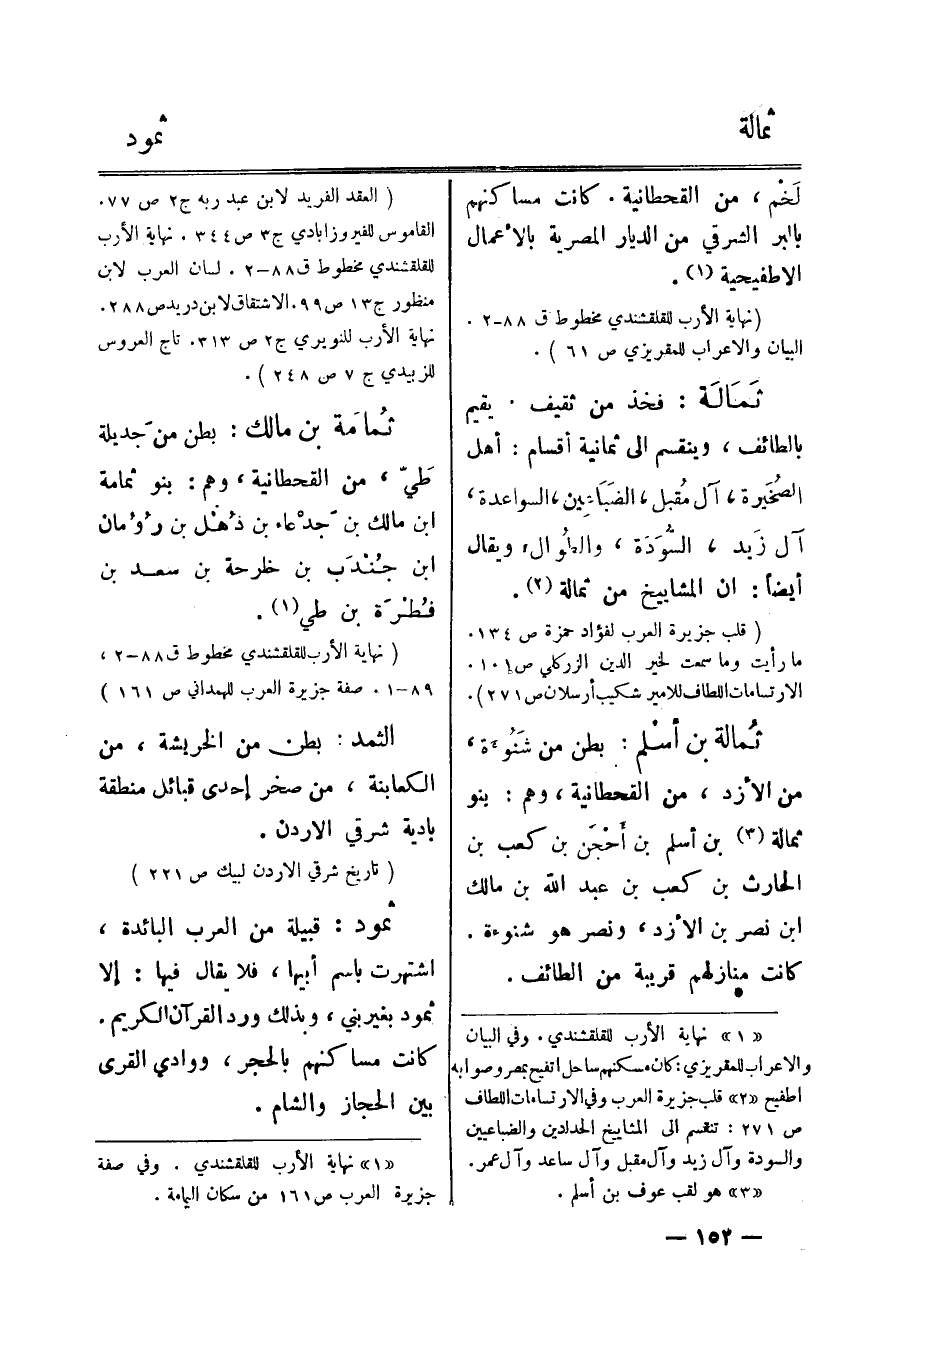 ثمالة
ثمود
لَخْم ، من القحطانية . كانت مساكنهم
بالبر الشرقي من الديار المصرية بالأعمال
الاطفيحية (١) .
(نهاية الأرب للقلقشندي مخطوط ق ٨٨-٢ .
البيان والاعراب للمقريزي ص ٦١ ) .
ثَمَالَة : فخذ من ثقيف . يقيم
بالطائف ، وينقسم الى ثمانية أقسام : أهل
الصُخَيرة ، آل مُقبل ، الضَبَاعين ، السواعدة ،
آل زَيد ، السُّوَدَة ، والطُوال ، ويقال
أيضاً : ان المشاييخ من ثمالة (٢) .
( قلب جزيرة العرب لفؤاد حمزة ص ١٣٤.
ما رأيت وما سمعت لخير الدين الزركلي ص ١٠١ .
الارتسامات اللطاف للامير شكيب أرسلان ص ٢٧١ ).
ثُمالة بن أسْلم : بطن من شَنُوءة ،
من الأزد ، من القحطانية ، وهم : بنو
ثمالة (٣) بن أسلم بن أَحْجَن بن كعب بن
الحارث بن كعب بن عبد الله بن مالك
ابن نصر بن الأزد ، ونصر هو شنوءة .
كانت منازلهم قريبة من الطائف .
«١» نهاية الأرب للقلقشندي . وفي البيان
والاعراب للمقريزي : كان مسكنهم ساحل اتفيح بمصر وصوابه
اطفيح «٢» قلب جزيرة العرب وفي الارتسامات اللطاف
ص ٢٧١ : تنقسم الى المشاييخ الحدادين والضباعين
والسودة وآل زيد وآل مقبل وآل ساعد وآل عمر .
«٣» هو لقب عوف بن أسلم .
( العقد الفريد لابن عبد ربه ج٢ ص ٧٧.
القاموس للفيروزابادي ج٣ ص ٣٤٤ . نهاية الأرب
للقلقشندي مخطوط ق ٨٨-٢ . لسان العرب لابن
منظور ج١٣ ص ٩٩. الاشتقاق لابن دريد ص ٢٨٨.
نهاية الأرب للنويري ج٢ ص ٣١٣. تاج العروس
للزبيدي ج ٧ ص ٢٤٨ ) .
ثُمامَة بن مالك : بطن من جَديلة
طَيّ ، من القحطانية ، وهم : بنو ثمامة
ابن مالك بن جَدْعاء بن ذُهْل بن رُومان
ابن جُنْدَب بن خارجة بن سعد بن
فُطْرَة بن طي (١) .
( نهاية الأرب للقلقشندي مخطوط ق ٨٨-٢ ،
٨٩-١ . صفة جزيرة العرب للهمداني ص ١٦١ )
الثمد : بطن من الخريشة ، من
الكعابنة ، من صخر إحدى قبائل منطقة
بادية شرقي الاردن .
( تاريخ شرقي الاردن لبيك ص ٢٢١ )
ثمود : قبيلة من العرب البائدة ،
اشتهرت باسم أبيها ، فلا يقال فيها : إلا
ثمود بغير بني ، وبذلك ورد القرآن الكريم .
كانت مساكنهم بالحجر ، ووادي القرى
بين الحجاز والشام .
«١» نهاية الأرب للقلقشندي . وفي صفة
جزيرة العرب ص ١٦١ من سكان اليمامة .
— ١٥٢ —